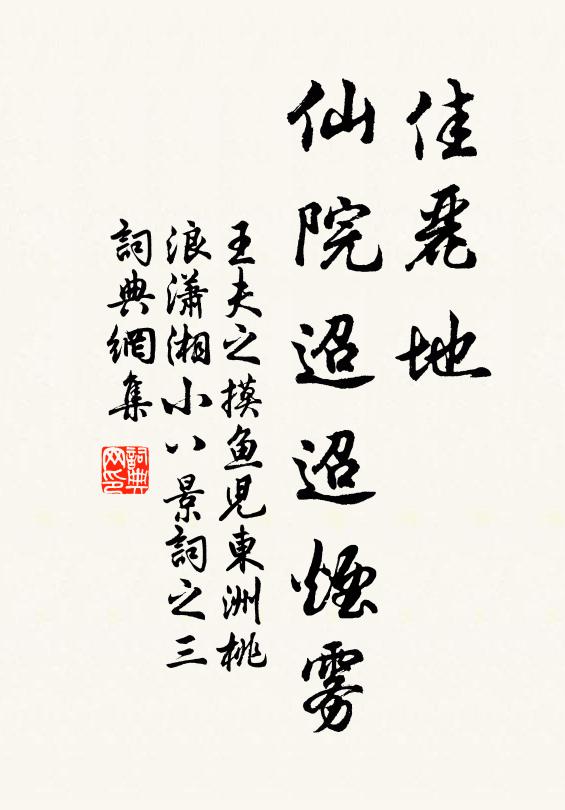 佳麗地
仙院迢迢煙雾
王夫之摸鱼児東洲桃
浪瀟湘小八景詞之三
詞典網集
詞典网印